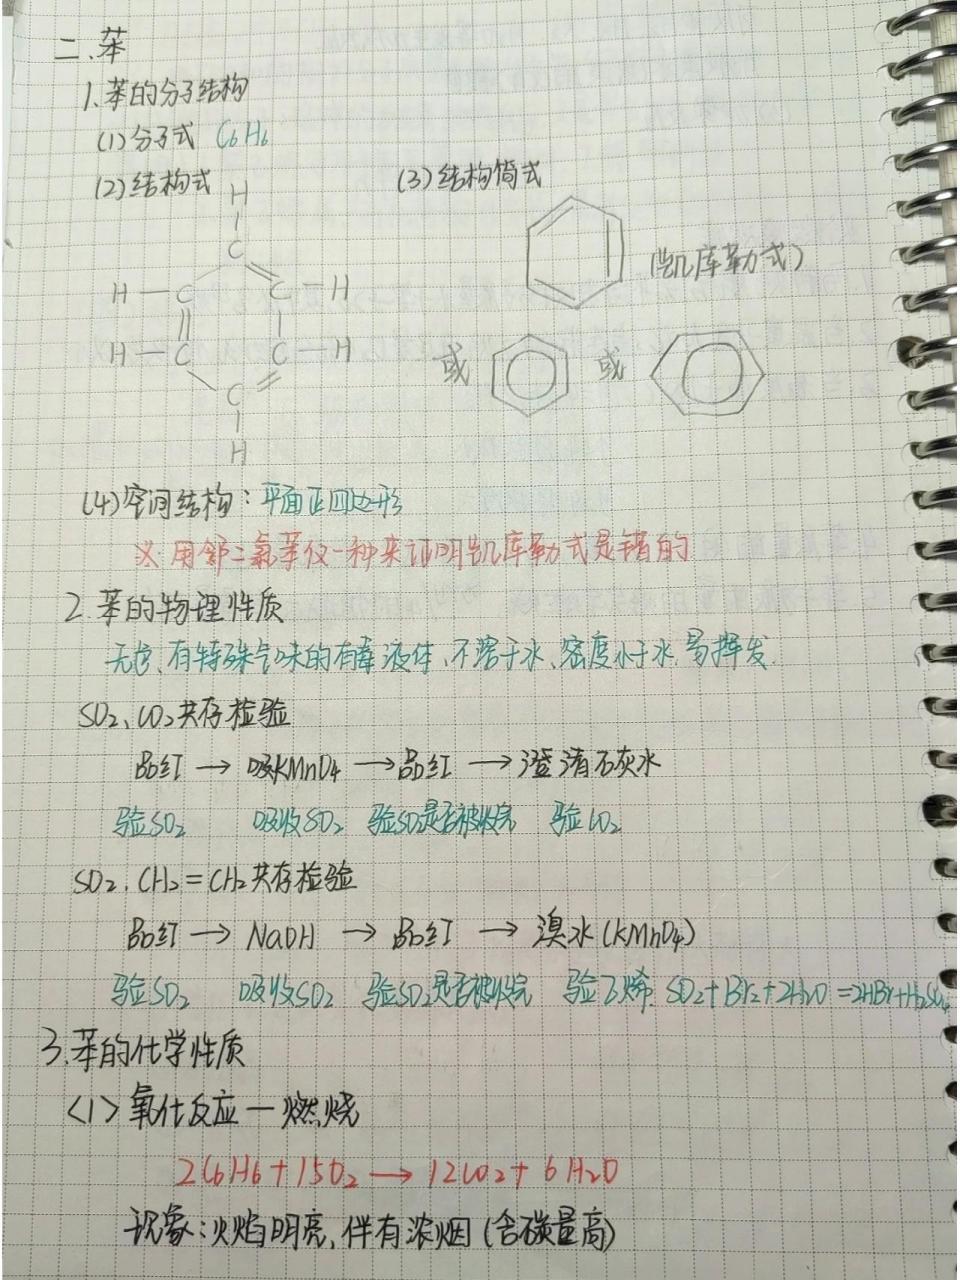 二、苯
1、苯的分子结构
(1)分子式 C6H6
(2)结构式 (3)结构简式
H
C
H—C C—H
H—C C—H
C
H
(凯库勒式)
或 或
(4)空间结构：平面正四边形
※用邻二氯苯仅一种来证明凯库勒式是错的
2.苯的物理性质
无色、有特殊气味的有毒液体、不溶于水、密度小于水、易挥发.
SO2、CO2共存检验
品红→吸KMnO4→品红→澄清石灰水
验SO2 吸收SO2 验SO2是否被收完 验CO2
SO2、CH2=CH2共存检验
品红→NaOH→品红→溴水(KMnO4)
验SO2 吸收SO2 验SO2是否被收完 验乙烯. SO2+Br2+2H2O=2HBr+H2SO4
3.苯的化学性质
<1>氧化反应—燃烧
2C6H6+15O2→12CO2+6H2O
现象：火焰明亮,伴有浓烟(含碳量高)